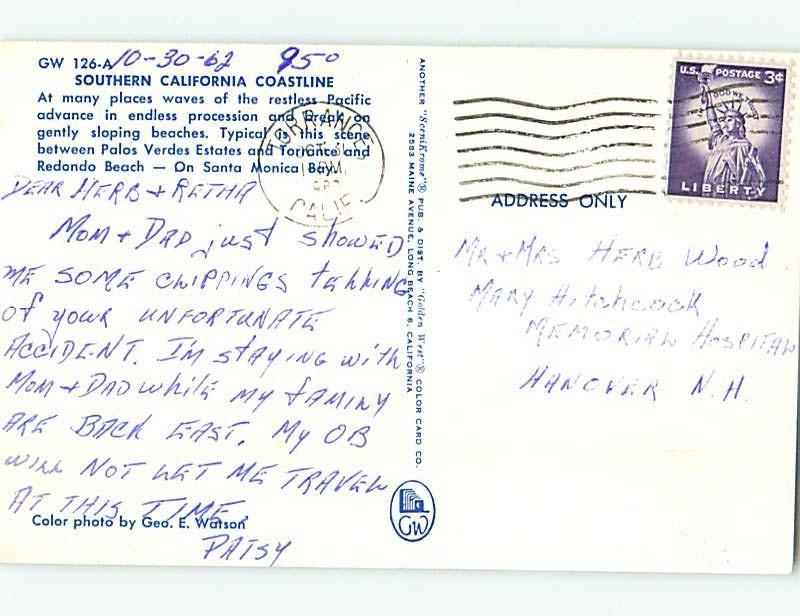 GW 126-A 10-30-62 95°
SOUTHERN CALIFORNIA COASTLINE
At many places waves of the restless Pacific
advance in endless procession and break on
gently sloping beaches. Typical is this scene
between Palos Verdes Estates and Torrance and
Redondo Beach — On Santa Monica Bay.
DEAR HERB + RETHA
MOM + DAD just showED
ME SOME CLIPPINGS tELLING
of youR UNFORTUNATE
ACCIDENT. I'M stAyING with
MOM + DAD while MY fAMILY
ARE BACK EAST. My OB
will NOT LET ME TRAVEL
AT THIS TIME.
Color photo by Geo. E. Watson
PATSY
ANOTHER "ScenicKrome"® PUB. & DIST. BY "Golden West"® COLOR CARD CO.
2583 MAINE AVENUE, LONG BEACH 6, CALIFORNIA
GW
TORRANCE
CALIF.
U.S. POSTAGE 3¢
IN GOD WE TRUST
LIBERTY
ADDRESS ONLY
MR + MRS HERB Wood
MARY HitchcocK
MEMORIAL HOSPITAL
HANOVER N.H.